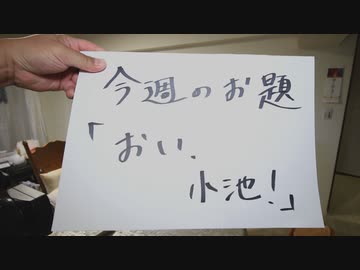 今週のお題
「おい、
小池!」